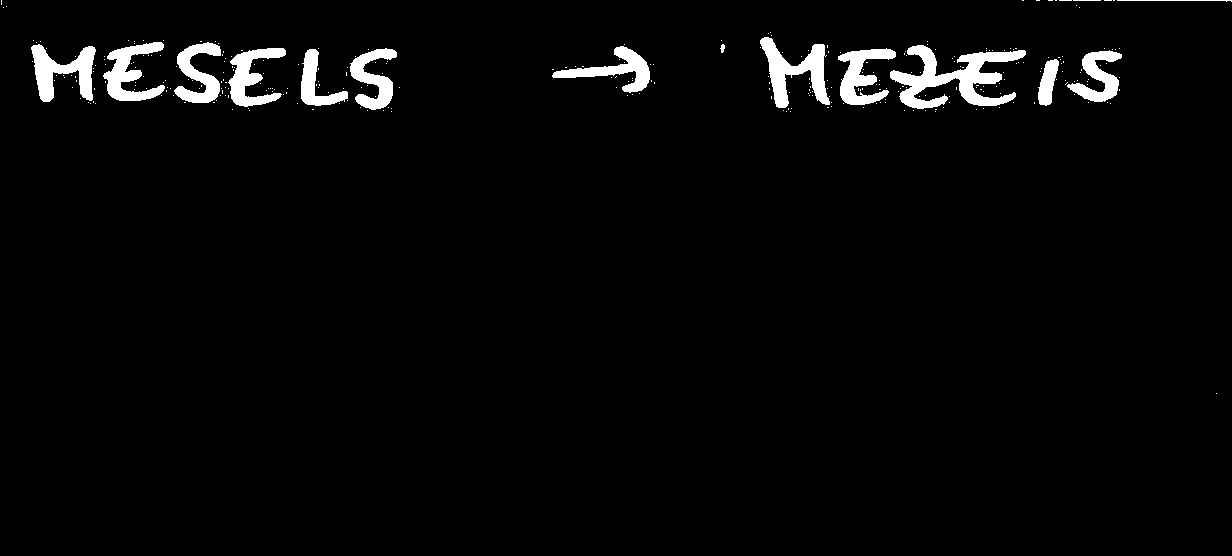 MESELS → MEZEIS